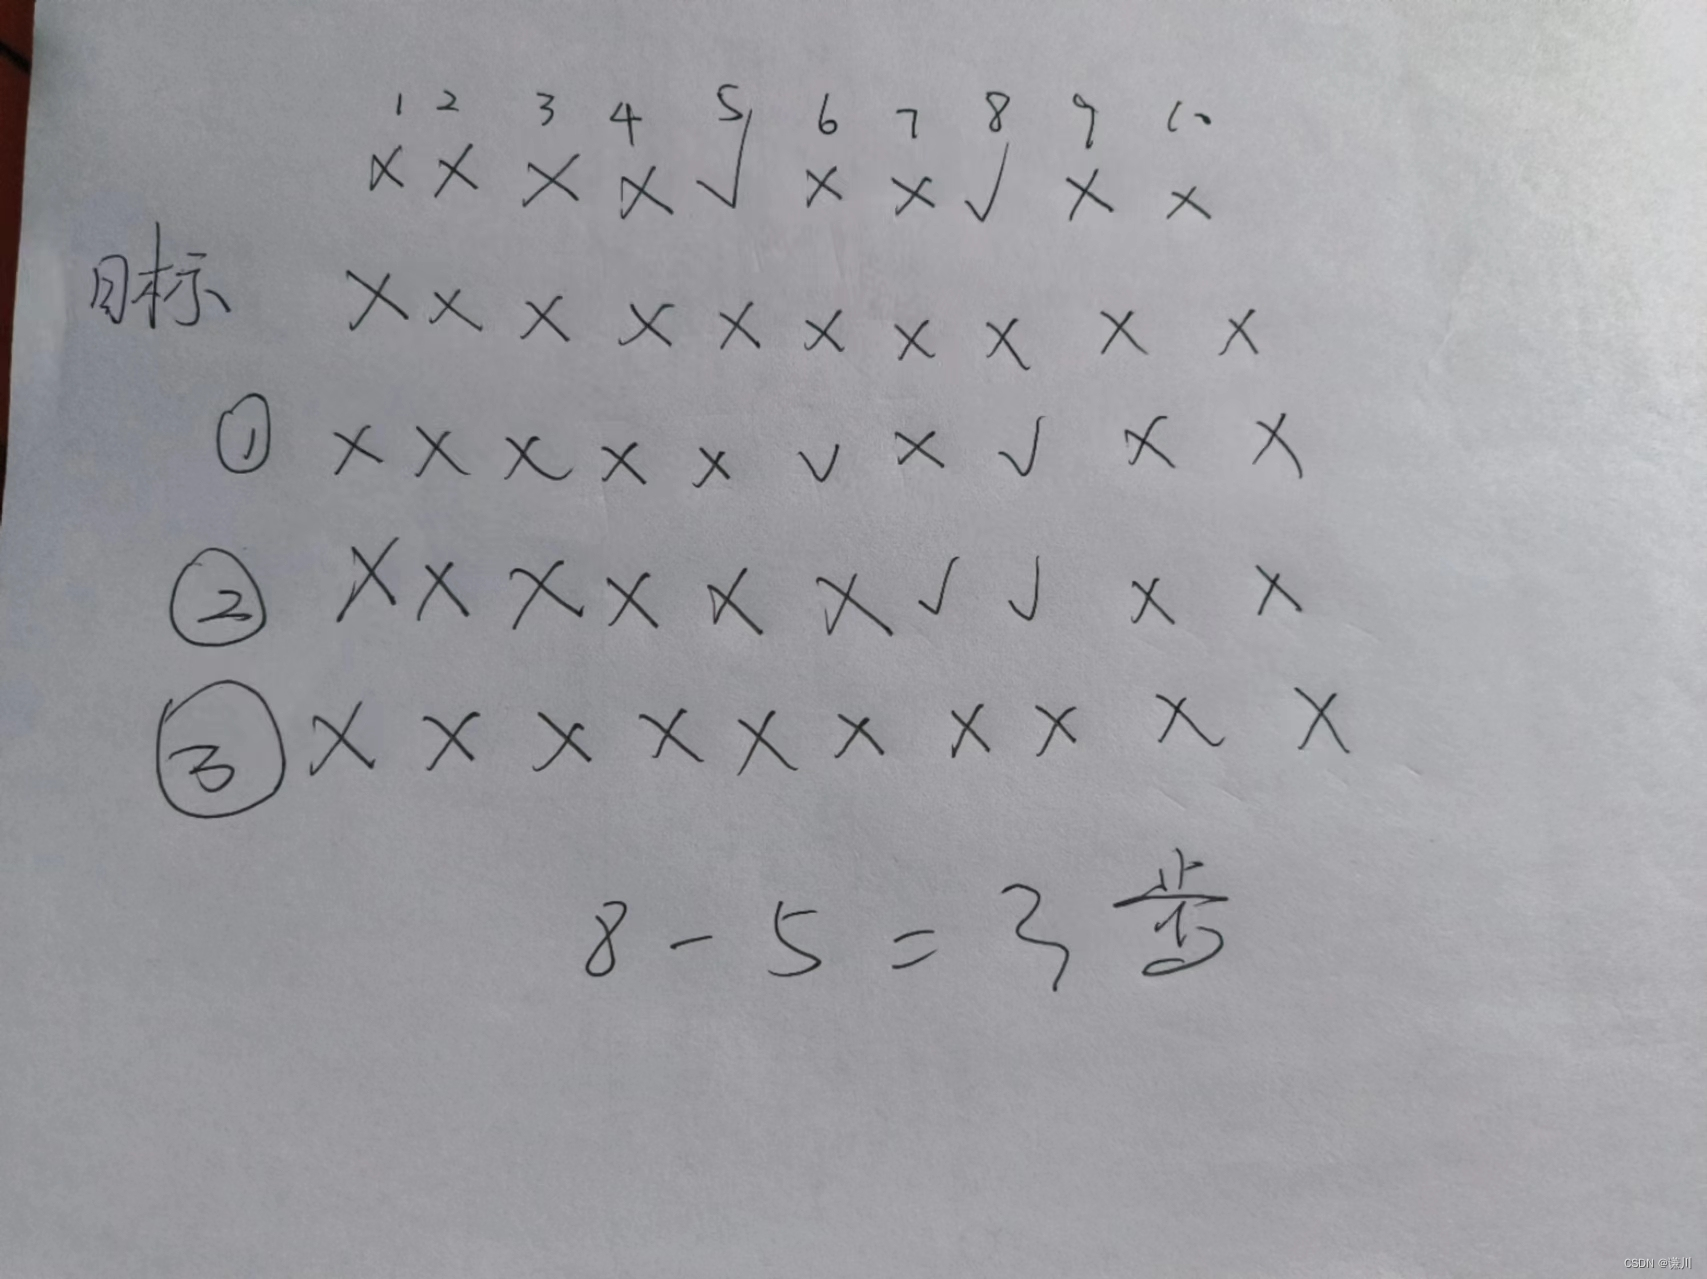 1 2 3 4 5 6 7 8 9 10
× × × × √ × × √ × ×
目标 × × × × × × × × × ×
① × × × × × √ × √ × ×
② × × × × × × √ √ × ×
③ × × × × × × × × × ×
8 - 5 = 3 步
CSDN @谦川